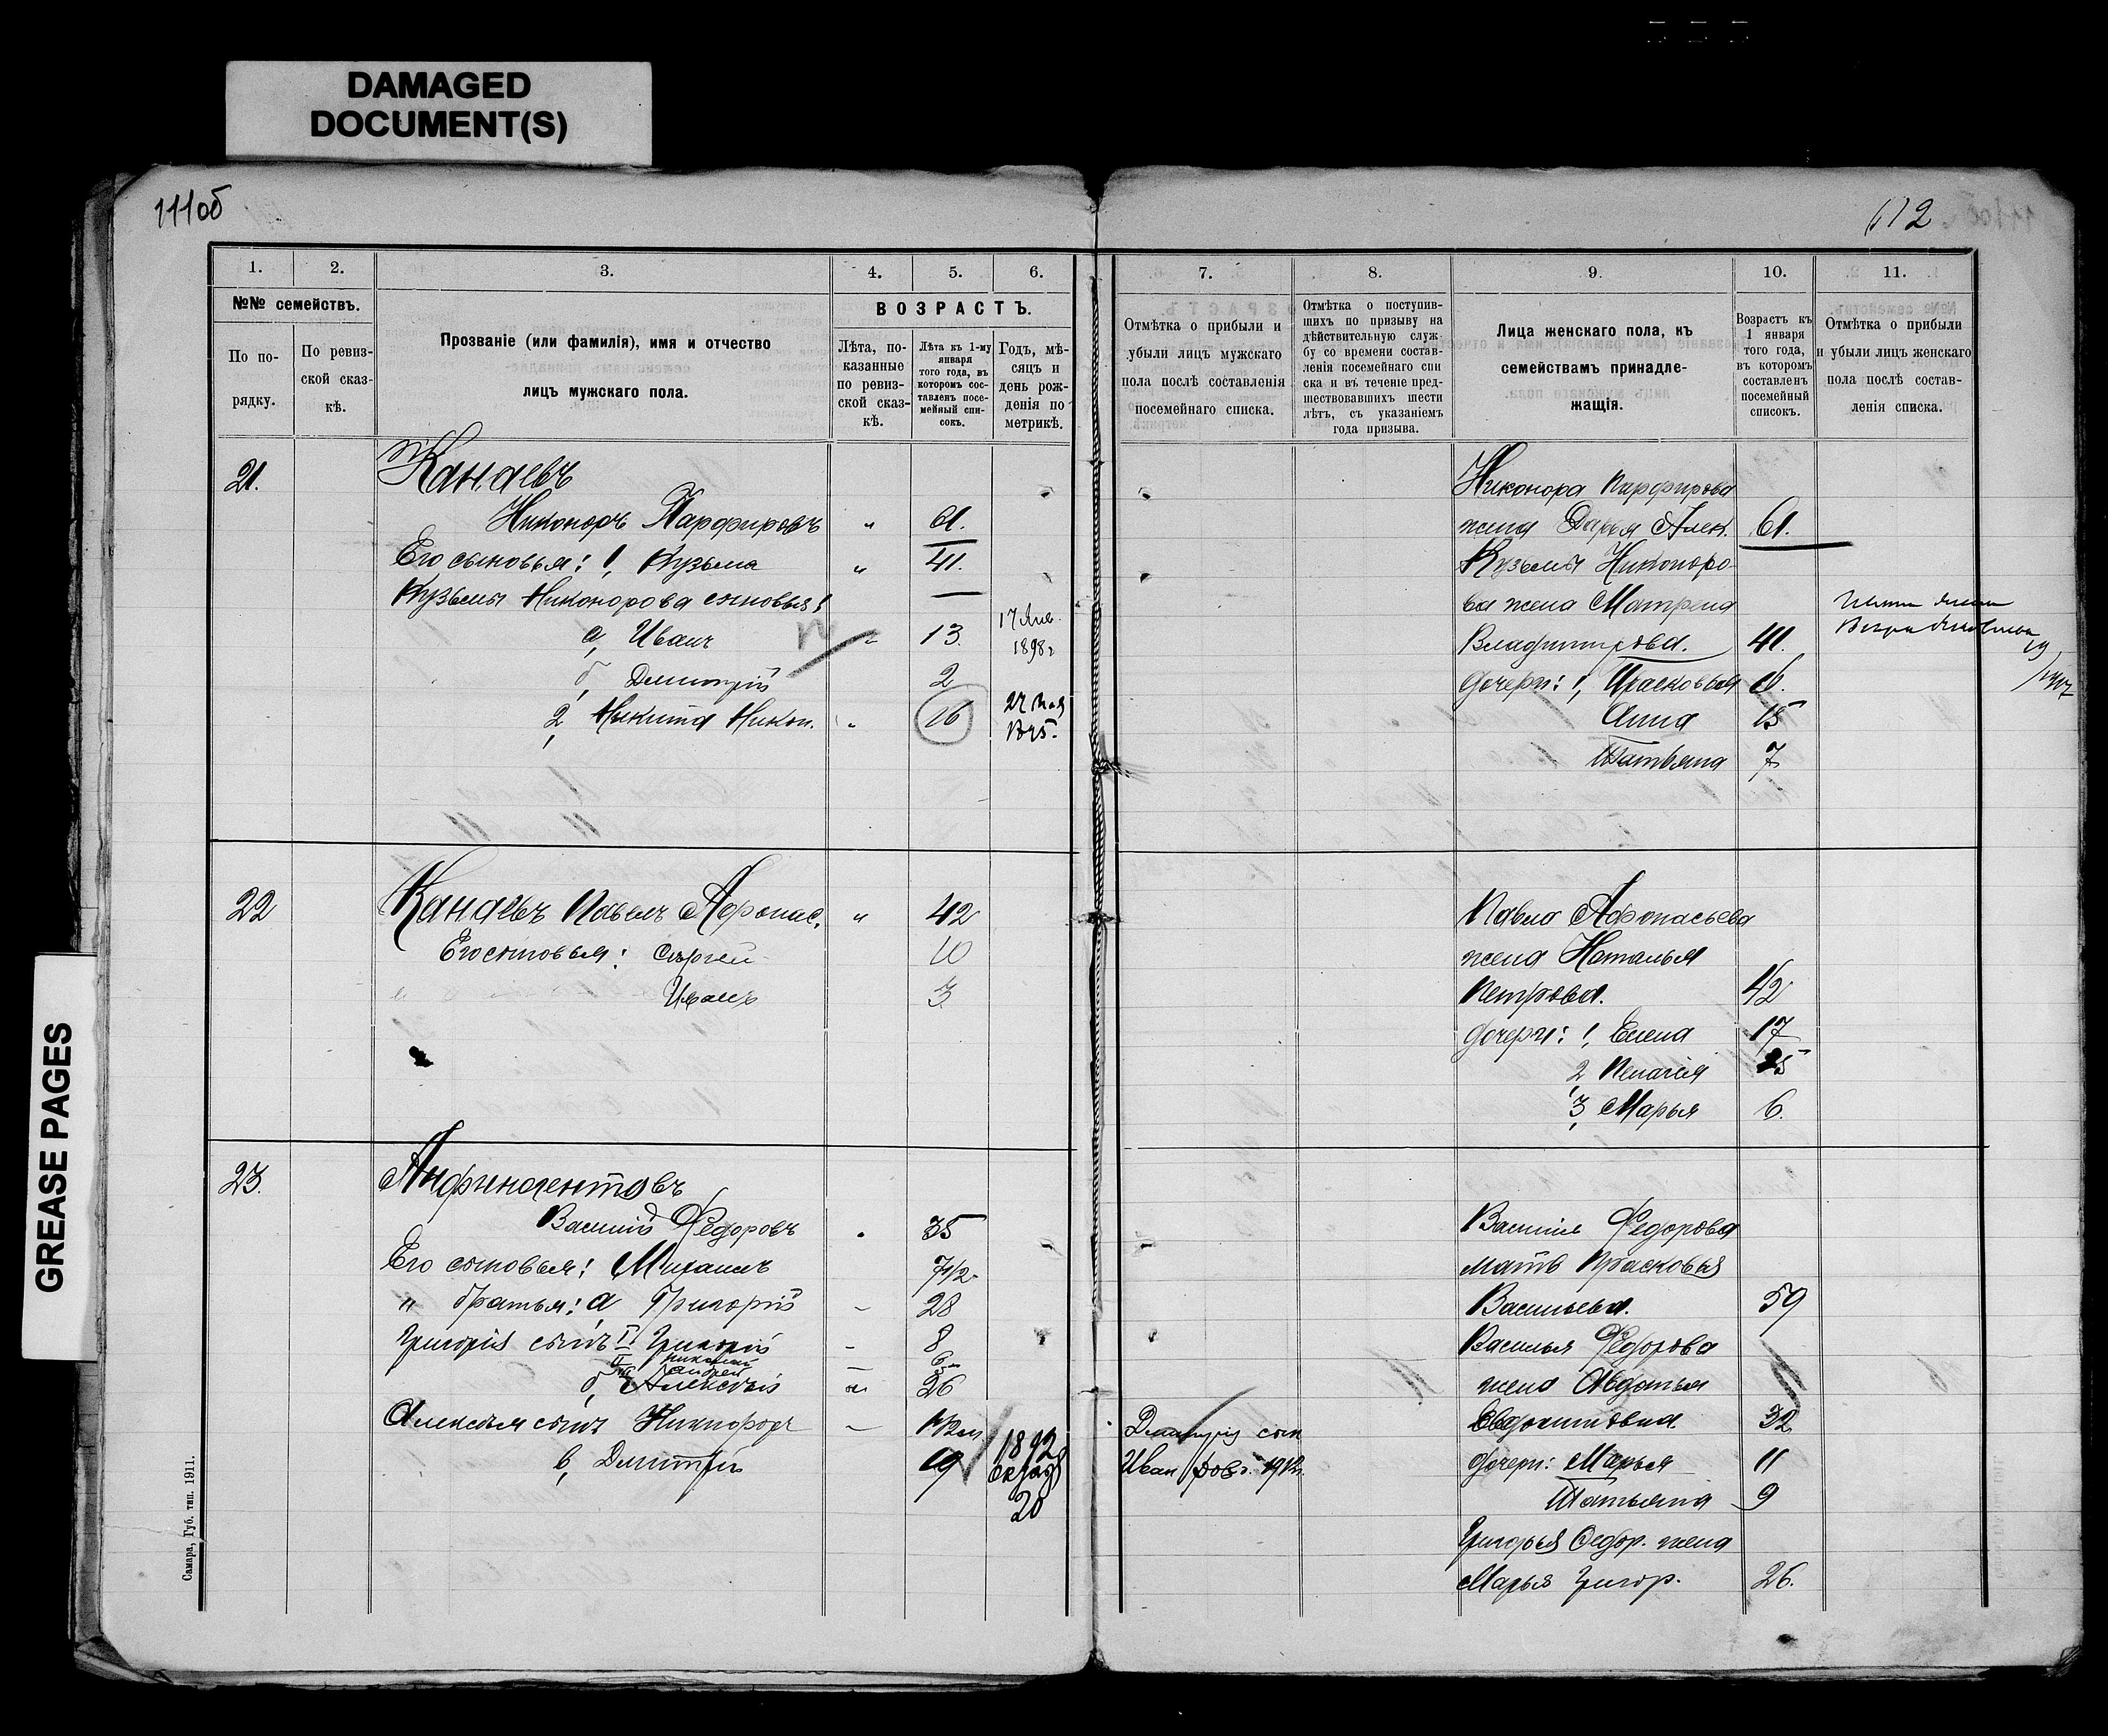 DAMAGED
DOCUMENT(S)
GREASE PAGES
111об
112
1. 2. 3. 4. 5. 6.
№№ семействъ.
По по-
рядку.
По ревиз-
ской сказ-
кѣ.
Прозваніе (или фамилія), имя и отчество
лицъ мужскаго пола.
ВОЗРАСТЪ.
Лѣта, по-
казанные
по ревиз-
ской сказ-
кѣ.
Лѣта къ 1-му
января
того года, въ
которомъ сос-
тавленъ посе-
мейный спи-
сокъ.
Годъ, мѣ-
сяцъ и
день рож-
денія по
метрикѣ.
21.
Канаевъ
Никоноръ Парфировъ " 61.
Его сыновья: 1, Кузьма " 41.
Кузьмы Никонорова сыновья:
а, Иванъ " 13. 17 Янв.
1898 г
б, Дмитрій 2
2, Никита Никон. " 16 27 Мая
22
Канаевъ Павелъ Афонас. " 42
Его сыновья: Сергѣй 10
Иванъ 3
23.
Анфиногентовъ
Василій Федоровъ 35
Его сыновья: Михаилъ 7 1/2
" братья: а Григорій - 28
Григорія сынъ I Григорій - 8
II Николай
Андрей
б, Алексѣй 26
Алексѣя сынъ Никифоръ
в, Дмитрій 19 1892
Октяб
20
Самара, Губ. тип. 1911.
7. 8. 9. 10. 11.
Отмѣтка о прибыли и
убыли лицъ мужскаго
пола послѣ составленія
посемейнаго списка.
Отмѣтка о поступив-
шихъ по призыву на
дѣйствительную служ-
бу со времени состав-
ленія посемейнаго спи
ска и въ теченіе пред-
шествовавшихъ шести
лѣтъ, съ указаніемъ
года призыва.
Лица женскаго пола, къ
семействамъ принадле-
жащія.
Возрастъ къ
1 января
того года,
въ которомъ
составленъ
посемейный
списокъ.
Отмѣтка о прибыли
и убыли лицъ женскаго
пола послѣ состав-
ленія списка.
Никонора Парфирова
жена Дарья Алек. 61.
Кузьмы Никоноро
ва жена Матрена
Владимирова. 41.
дочери: 1, Прасковья 16.
Анна 15
Татьяна 7
Павла Афонасьева
жена Наталья
Петрова. 42
дочери: 1, Елена 17
2, Пелагія 15
3, Марья 6.
Василія Федорова
мать Прасковья
Васильева. 59
Василья Федорова
жена Авдотья
Евдокимовна 32
Дмитрія сын
Иван 1912
дочери: Марья 11
Татьяна 9
Григорья Федор. жена
Марья Григор. 26.